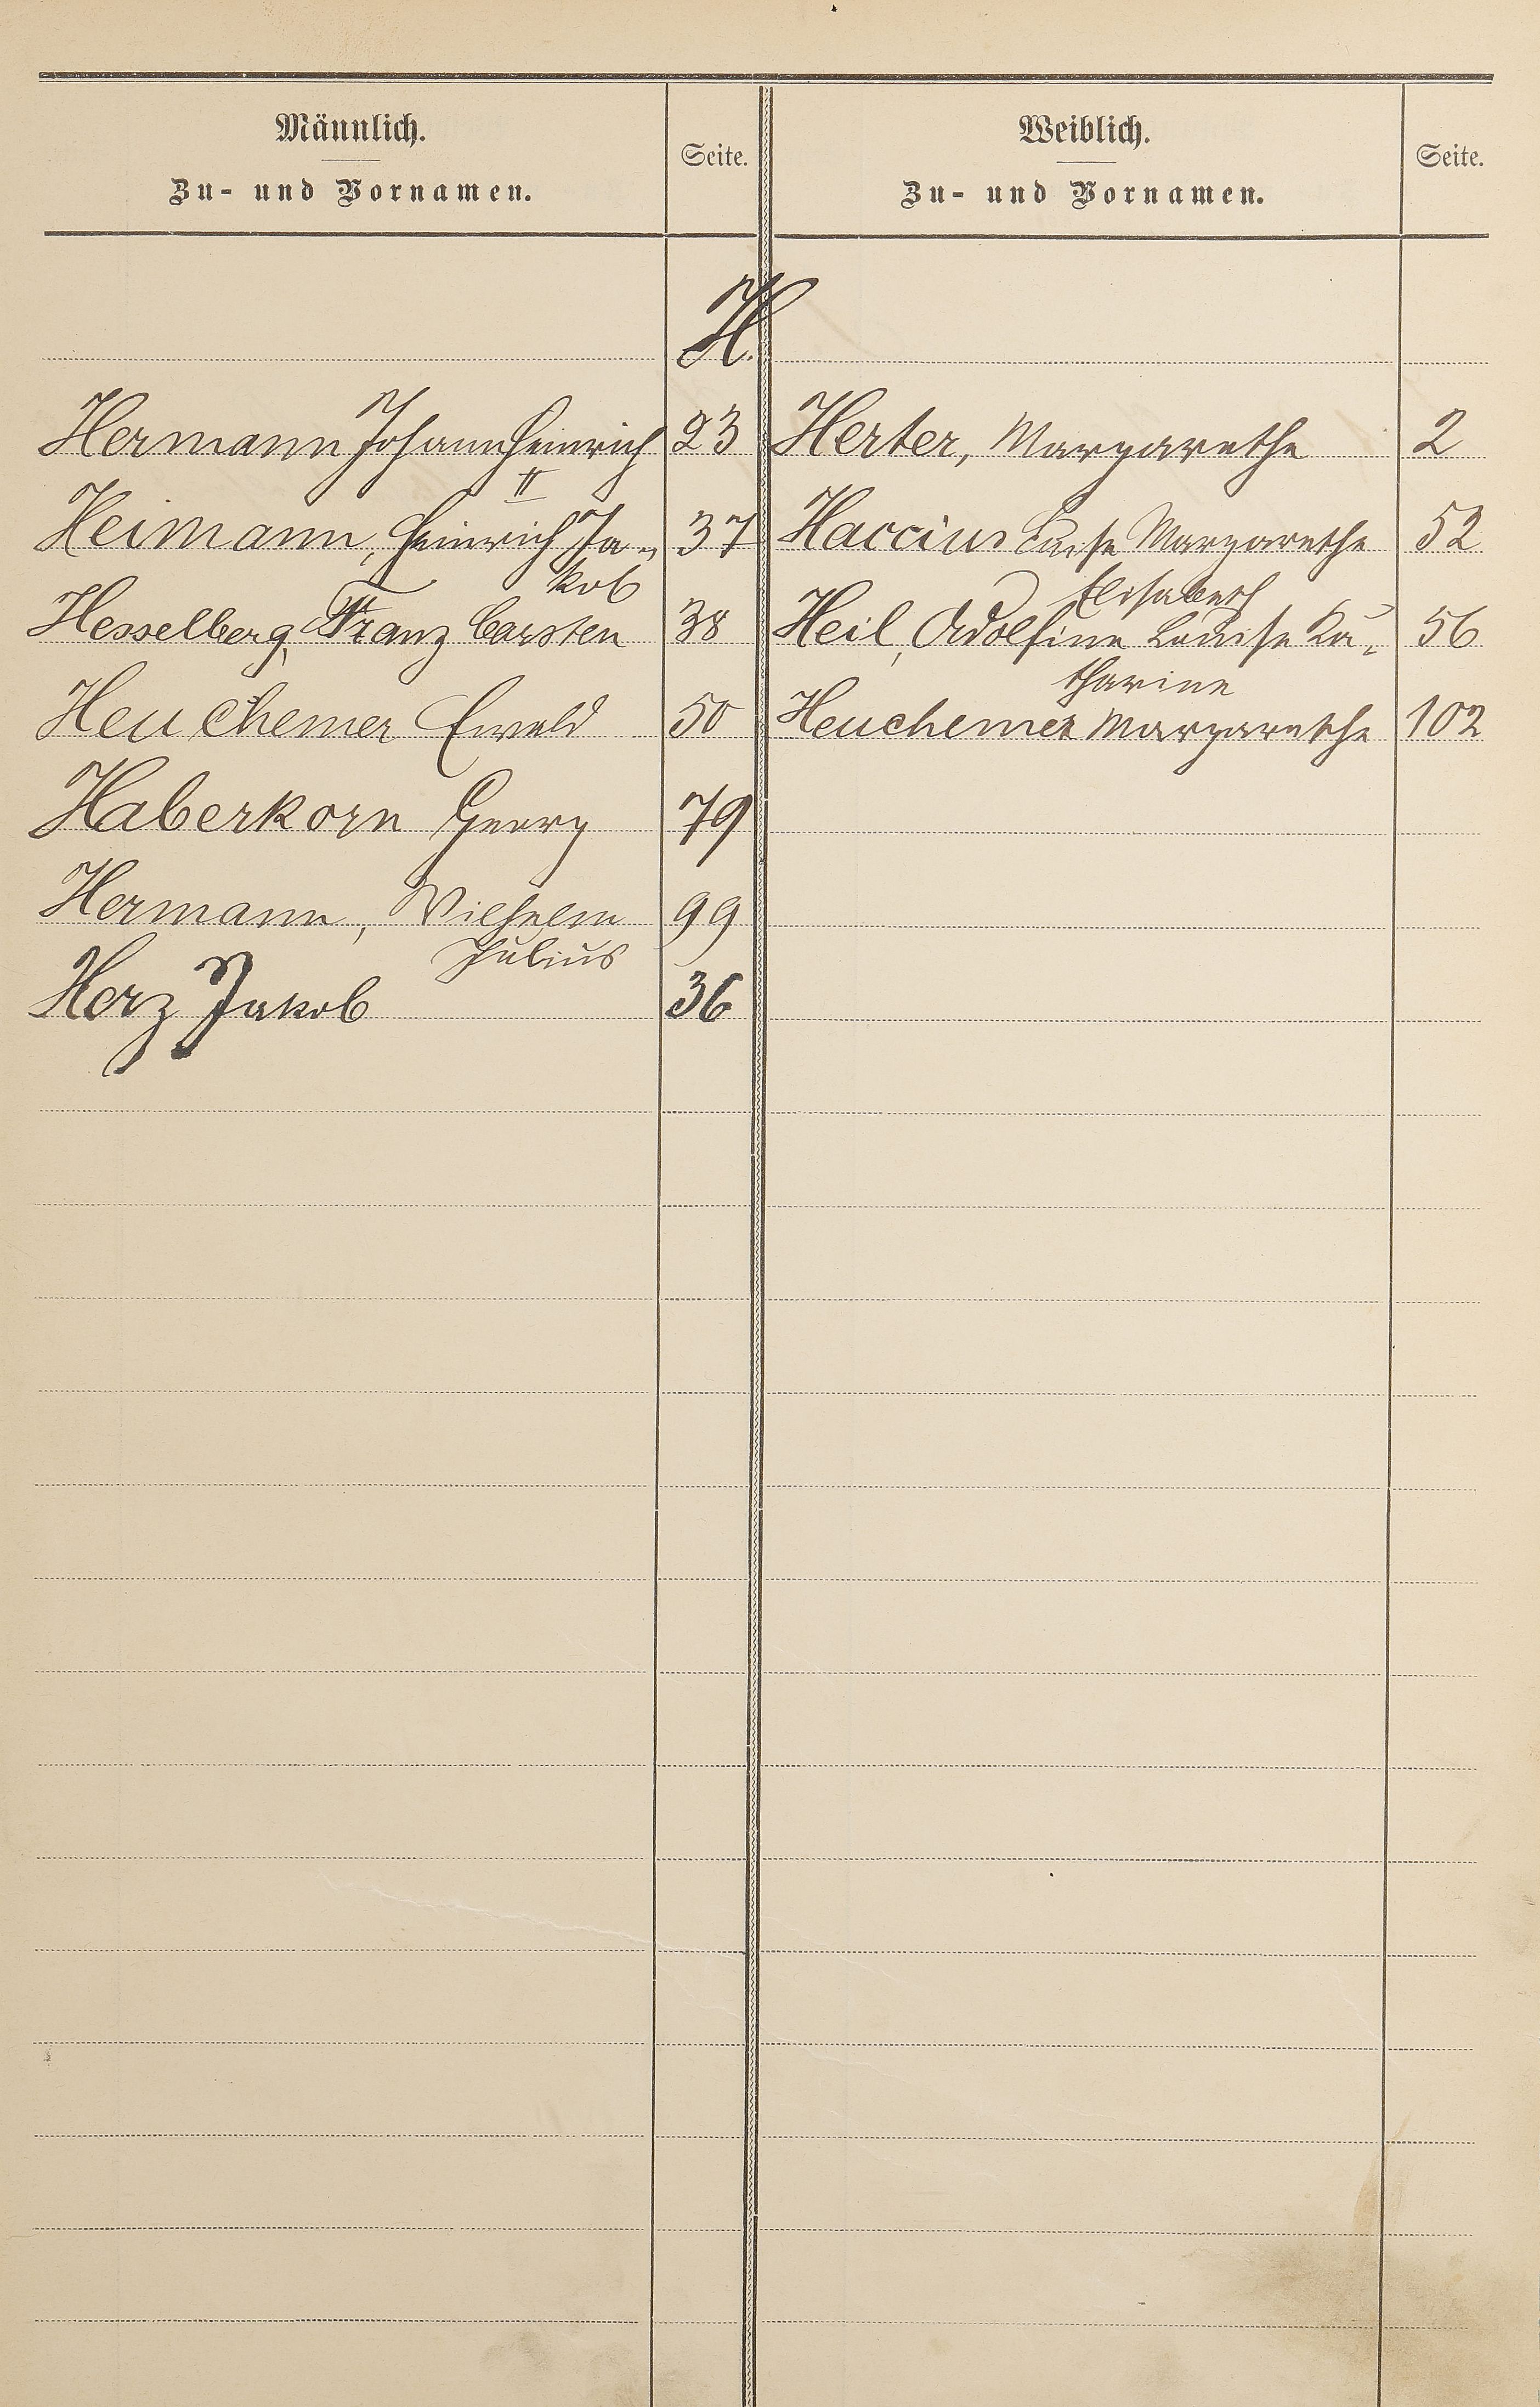 Männlich.
Zu- und Vornamen.
Seite.
Weiblich.
Zu- und Vornamen.
Seite.
H.
Hermann Johann Heinrich 23 Herter, Margarethe 2
II
Heimann, Heinrich Ja- 37 Haccius Luise Margarethe 52
kob Elisabeth
Hesselberg, Franz Carsten 38 Heil, Adolfine Louise Ka- 56
tharine
Heuchemer Ewald 50 Heuchemer Margarethe 102
Haberkorn Georg 79
Hermann, Wilhelm 99
Julius
Herz Jakob 36